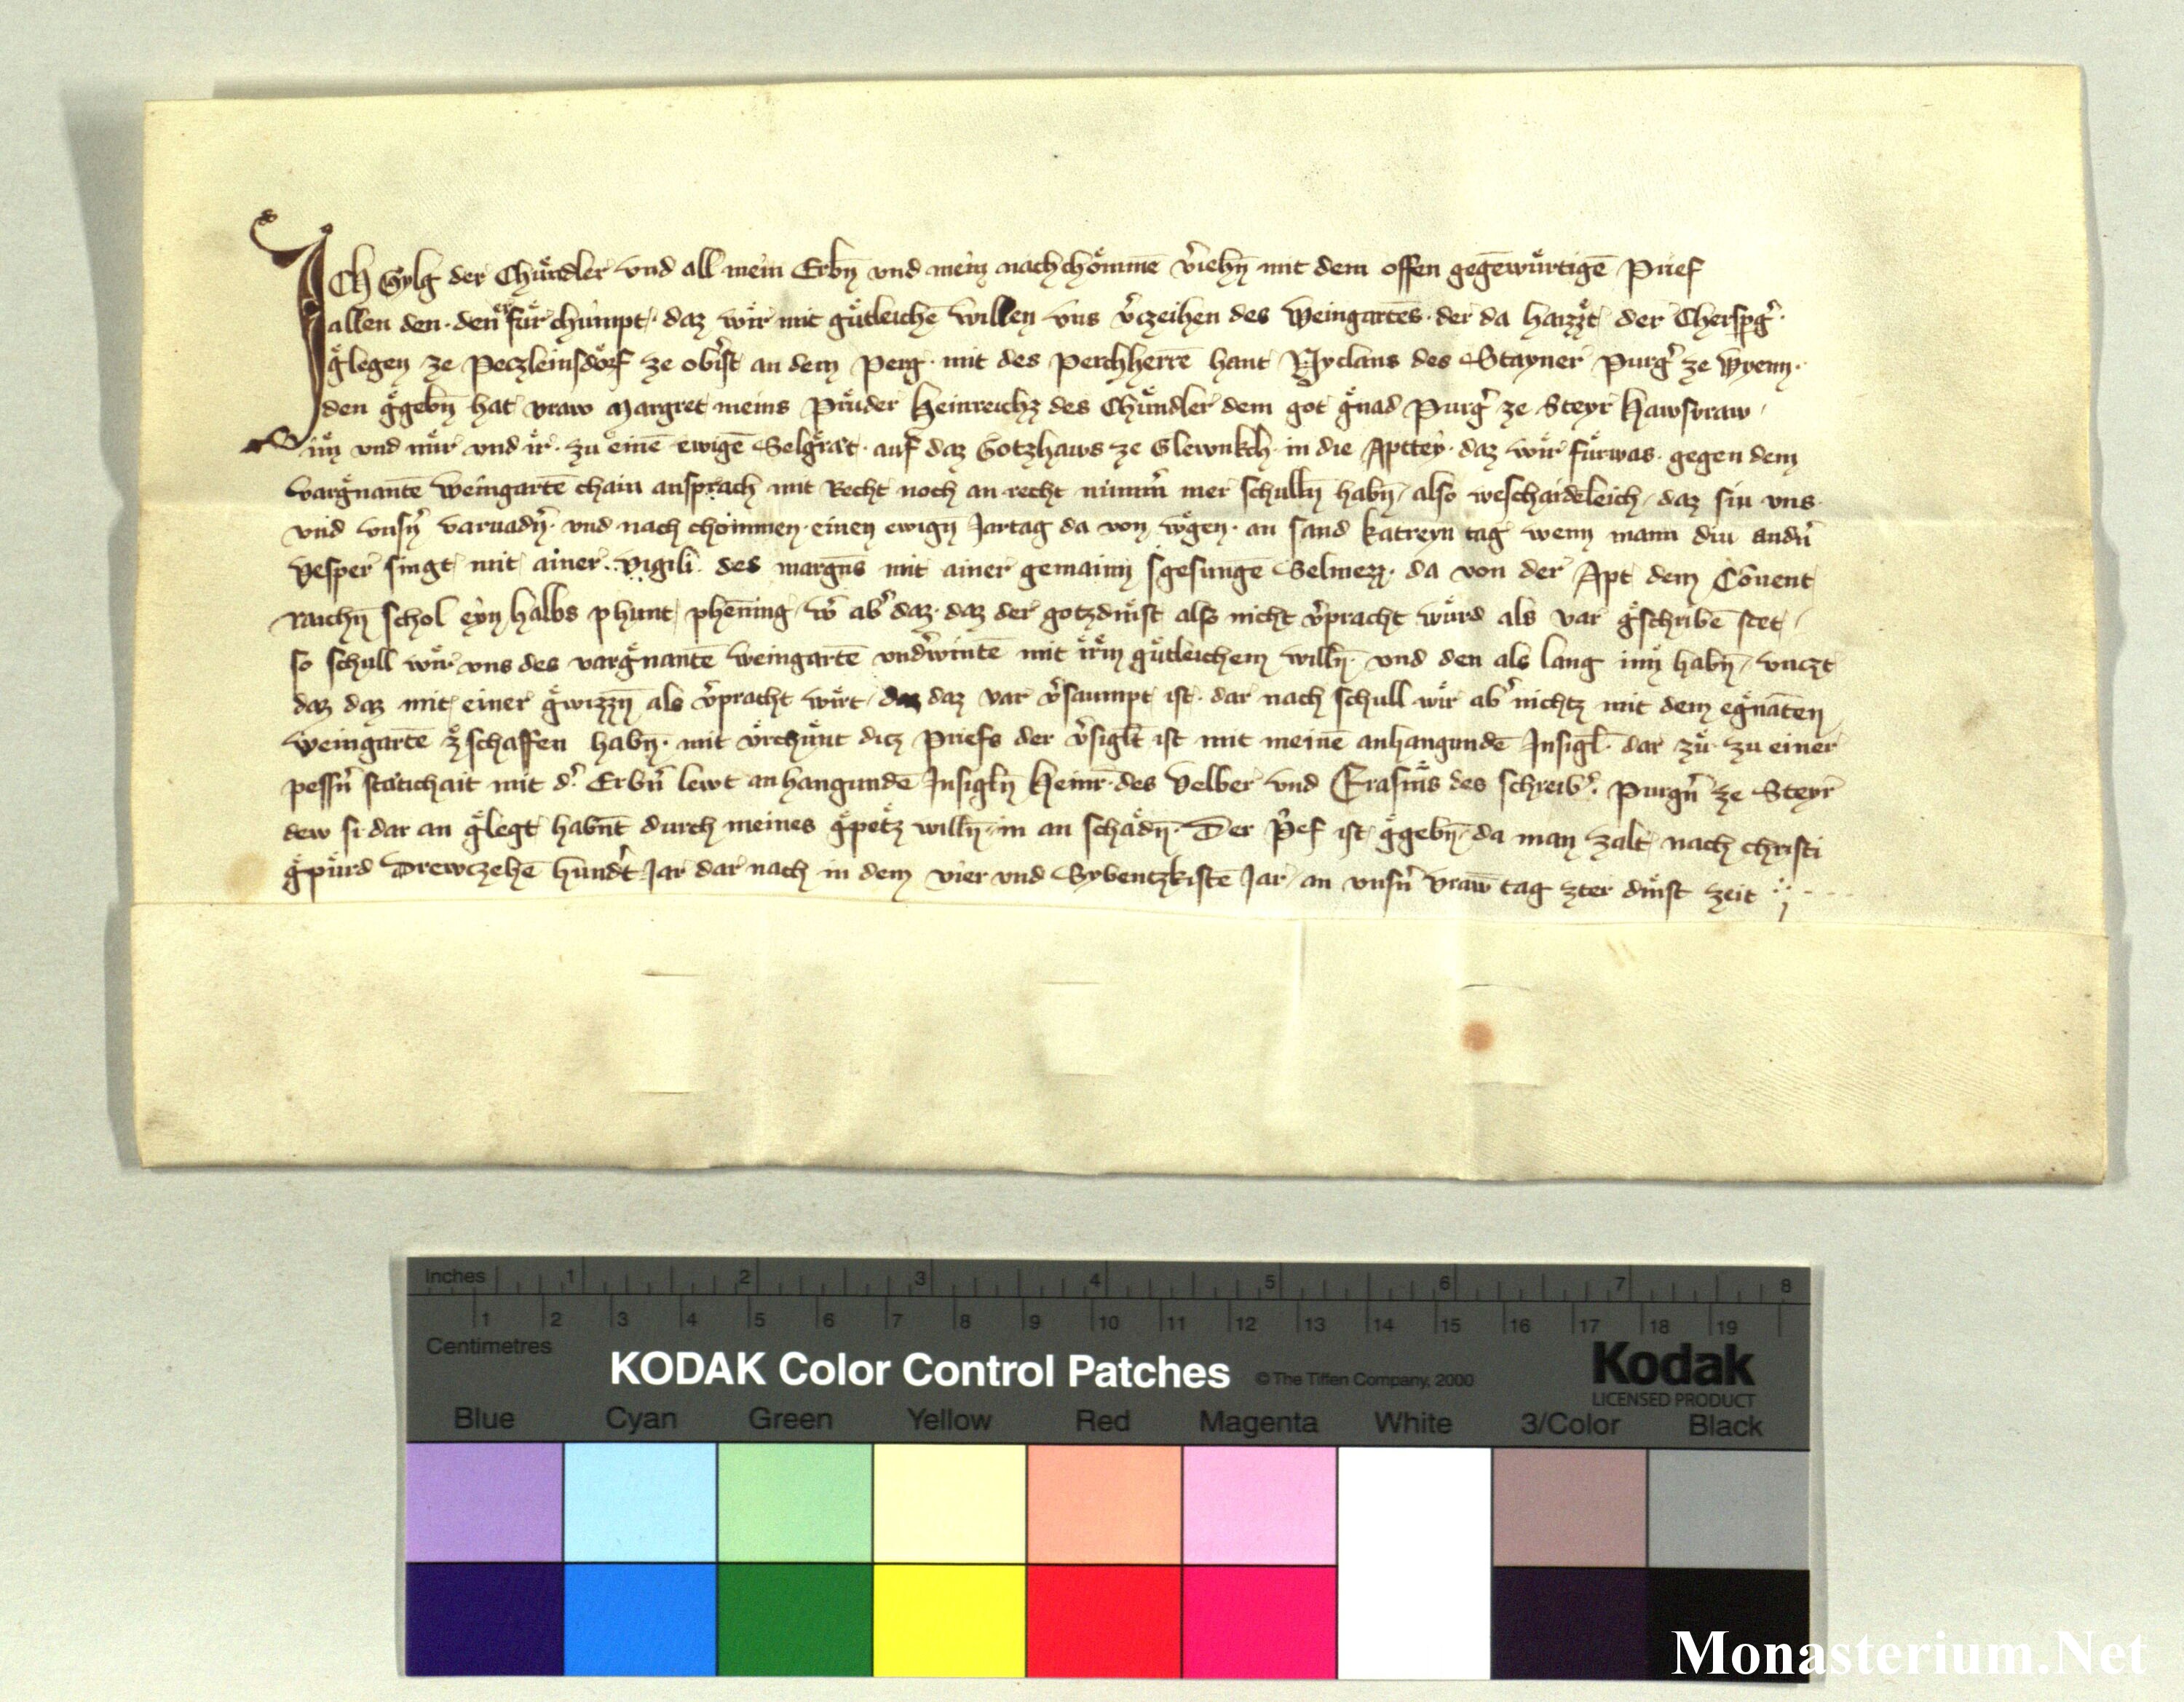 Ich Gylg der Chuͤrdler vnd all mein Erbn̄ vnd mein nachchoͤmmē v̾iehn̄ mit dem offen gegēwuͤrtigē Prief
allen den · den er fuͤr chumpt · daz wir mit guͤtleichē willen vns v̾czeihen des Weingartēs · der da haizzet der Cherspg̾ ·
gͤlegen ze Peczleinsdorf ze ob̾ist an dem Perg · mit des perchherrē hant Nyclans des Stayner Purg̾ ze Wyenn ·
den gͤgebn̄ hat vraw Margret meins Pruͤder Heinreichz des Chuͤndler dem got gͤnad Purg̾ ze Steyr Hawsvraw
im vnd mir vnd ir · zu einē ewigē Selgͤrat · auf daz Gotzhaws ze Glewnkch in die Apttey · daz wir fuͤrwas · gegen dem
vargͤnantē Weingartē chain ansprach mit Recht noch an recht nimm̾ mer schulln̄ habn̄ / also weschaidēleich / daz siu vns ·
vnd vnsn̾ varuadn̾ · vnd nach chömmen · einen ewign Jartag da von wͤgen · an sand katreyn tag wenn mann diu andn̾
vesper singt mit ainer · vigili · des margns mit ainer gemainn gesungē Selmezz · da von der Apt dem Cōuent
raichn̄ schol eyn halbs phunt phēning / w̾ ab̾ daz · daz der gotzdinst also nicht v̾pracht wuͤrd als var gͤschribē stet /
so schull wir vns des vargͤnantē Weingartē vnd̾wintē mit irm guͤtleichem willn̄ · vnd den als lang inn habn̄ / vnczt
daz daz mit einer gͤwizzn̄ als v̾pracht wirt / daz daz var v̾saumpt ist · dar nach schull wir ab̾ nichtz mit dem egͤnātēn
Weingartē zͤschaffen habn̄ · mit vrchuͤnt dicz Priefs der v̾siglt ist mit meinē anhangundē Insigl · dar zuͤ · zu einer
pessn̾ staͤtichait mit d̾ · Erbn̾ lewt anhangundē Insigln̄ Heinr̄ · des Velber vnd Erasms des schreib̾ · Purgn̾ ze Steyr
dew si dar an gͤlegt habnt durch meines gͤpetz willn̄ · in an schaͤdn̄ · Der P̾ef ist gͤgebn̄ · da man zalt nach christi
gͤpuͤrd Drewczehē hundt̾ Jar dar nach in dem vier vnd Sybentzkistē Jar / an vnsn̾ vraw̄ tag zter dinst zeit
Inches 1 2 3 4 5 6 7 8
1 2 3 4 5 6 7 8 9 10 11 12 13 14 15 16 17 18 19
Centimetres
KODAK Color Control Patches © The Tiffen Company, 2000 Kodak
LICENSED PRODUCT
Blue Cyan Green Yellow Red Magenta White 3/Color Black
Monasterium.Net